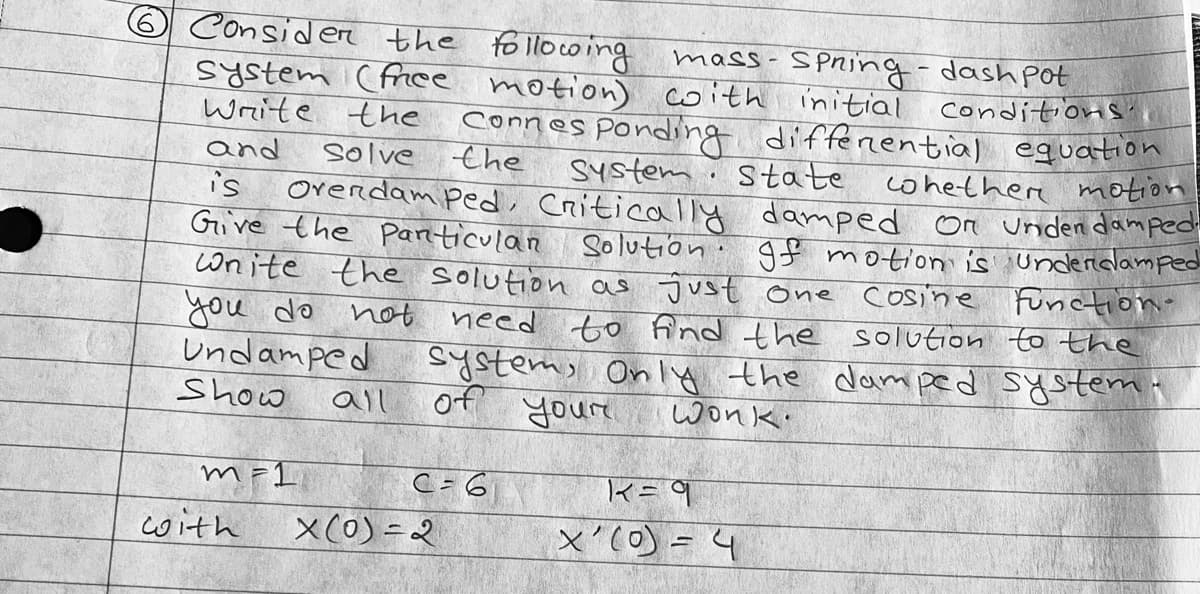 6 Consider the following mass-spring-dashpot
system (free motion) with initial conditions.
Write the corresponding differential equation
and solve the system. State whether motion
is overdamped, Critically damped or underdamped
Give the particular Solution. If motion is underdamped
write the solution as just one cosine function.
you do not need to find the solution to the
Undamped system, Only the damped system.
Show all of your work.
m=1 C=6 K=9
with X(0)=2 X'(0)=4